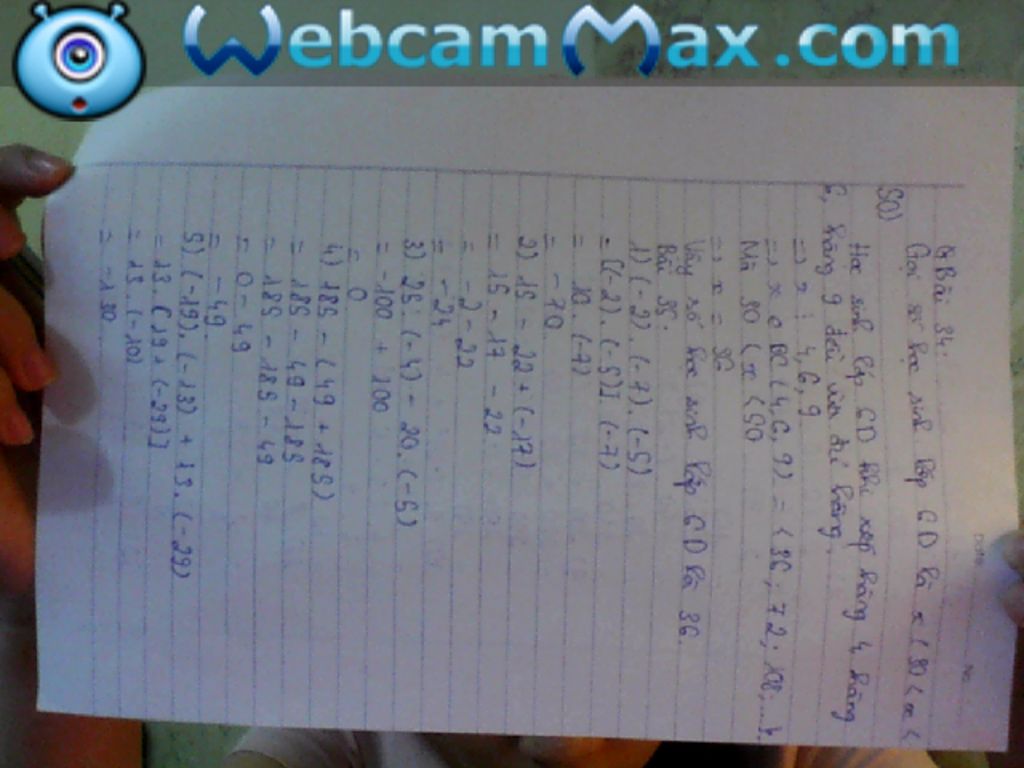 WebcamMax.com
Date No
Bài 34:
Gọi số học sinh lớp 6D là x (30 < x <
50)
Học sinh lớp 6D khi xếp hàng 4, hàng
6, hàng 9 đều vừa đủ hàng
=> x ⋮ 4, 6, 9
=> x ∈ BC (4, 6, 9) = {36; 72; 108; ...}.
Mà 30 < x < 50
=> x = 36
Vậy số học sinh lớp 6D là 36.
Bài 35:
1) (-2) . (-7) . (-5)
= [(-2) . (-5)] . (-7)
= 10 . (-7)
= - 70
2) 15 - 22 + (-17)
= 15 - 17 - 22
= -2 - 22
= - 24
3) 25 . (-4) - 20 . (-5)
= -100 + 100
= 0
4) 185 - (49 + 185)
= 185 - 49 - 185
= 185 - 185 - 49
= 0 - 49
= - 49
5) (-19) . (-13) + 13 . (-29)
= 13 . [19 + (-29)]
= 13 . (-10)
= -130